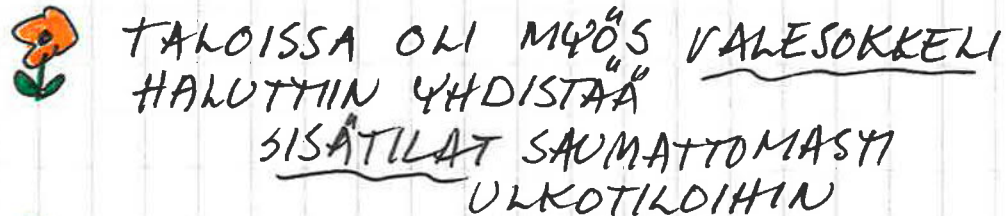 TALOISSA OLI MYÖS VALESOKKELI
HALUTTIIN YHDISTÄÄ
SISÄTILAT SAUMATTOMASTI
ULKOTILOIHIN